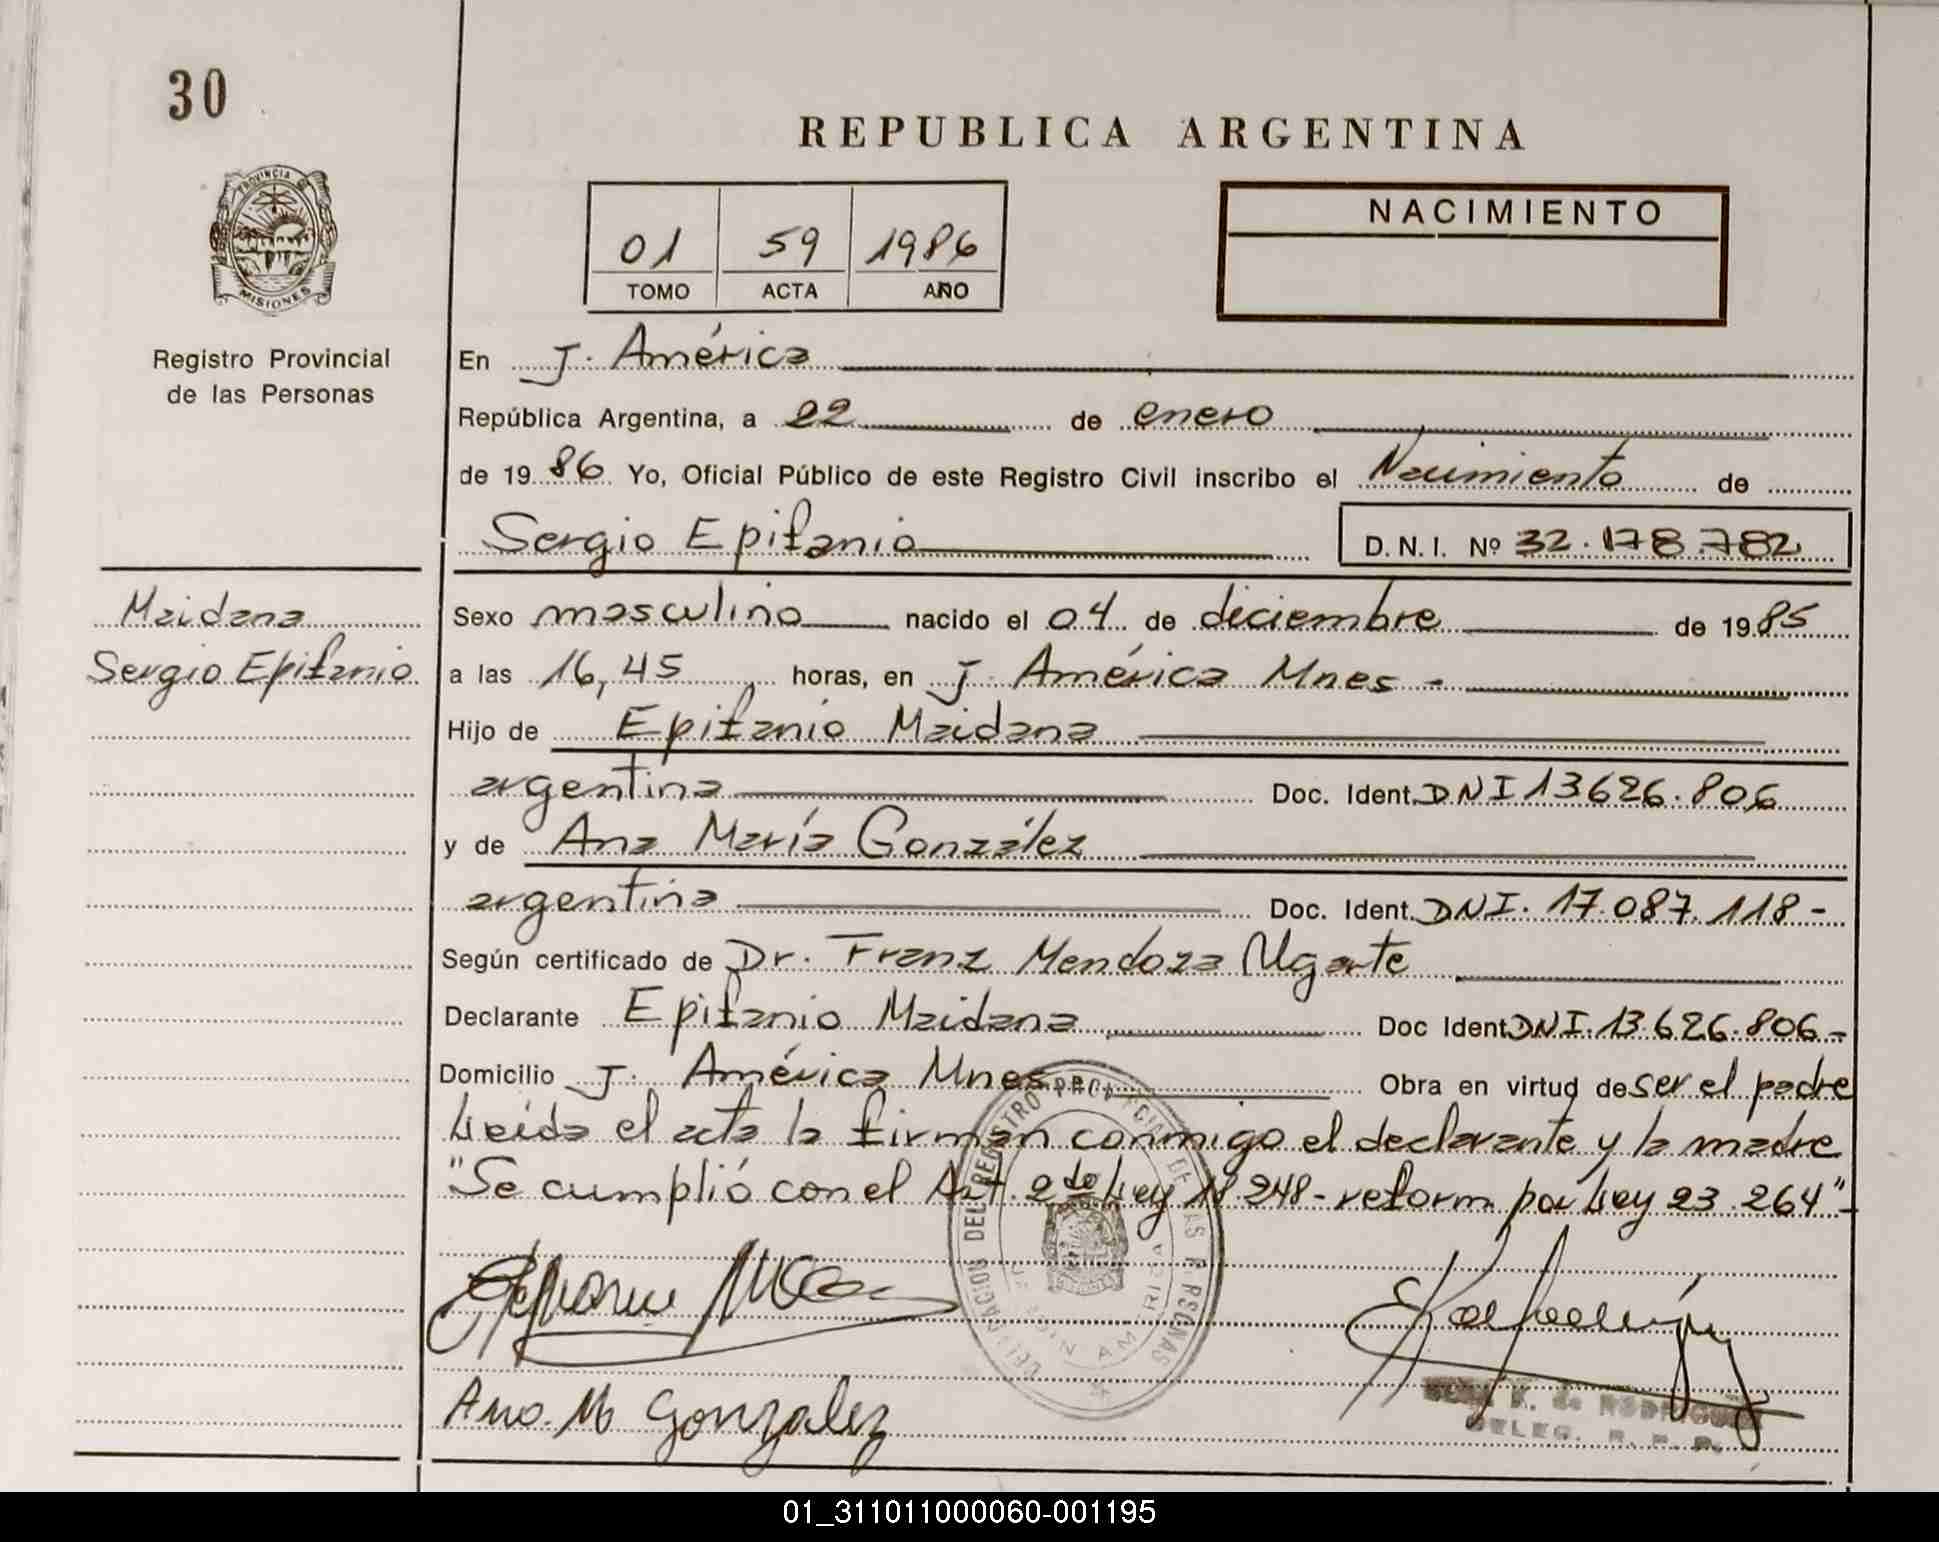 30
REPUBLICA ARGENTINA
PROVINCIA DE
MISIONES
Registro Provincial
de las Personas
01 59 1986
TOMO ACTA AÑO
NACIMIENTO
En J. América
República Argentina, a 22 de enero
de 1986 Yo, Oficial Público de este Registro Civil inscribo el Nacimiento de
Sergio Epifanio D.N.I. Nº 32.178.782
Maidana
Sergio Epifanio
Sexo masculino nacido el 04 de diciembre de 1985
a las 16,45 horas, en J. América Mnes -
Hijo de Epifanio Maidana
argentina Doc. Ident. DNI 13626.806
y de Ana María González
argentina Doc. Ident. DNI. 17.087.118-
Según certificado de Dr. Franz Mendoza Ugarte
Declarante Epifanio Maidana Doc Ident DNI. 13.626.806-
Domicilio J. América Mnes Obra en virtud de ser el padre
Leída el acta la firman conmigo el declarante y la madre
"Se cumplió con el Art. 2do Ley 18.248- reform. por Ley 23.264"-
DEL REGISTRO PROVINCIAL DE LAS PERSONAS
Ana. M Gonzalez
K. de RODRIGUEZ
DELEG. R. P. P.
01_311011000060-001195